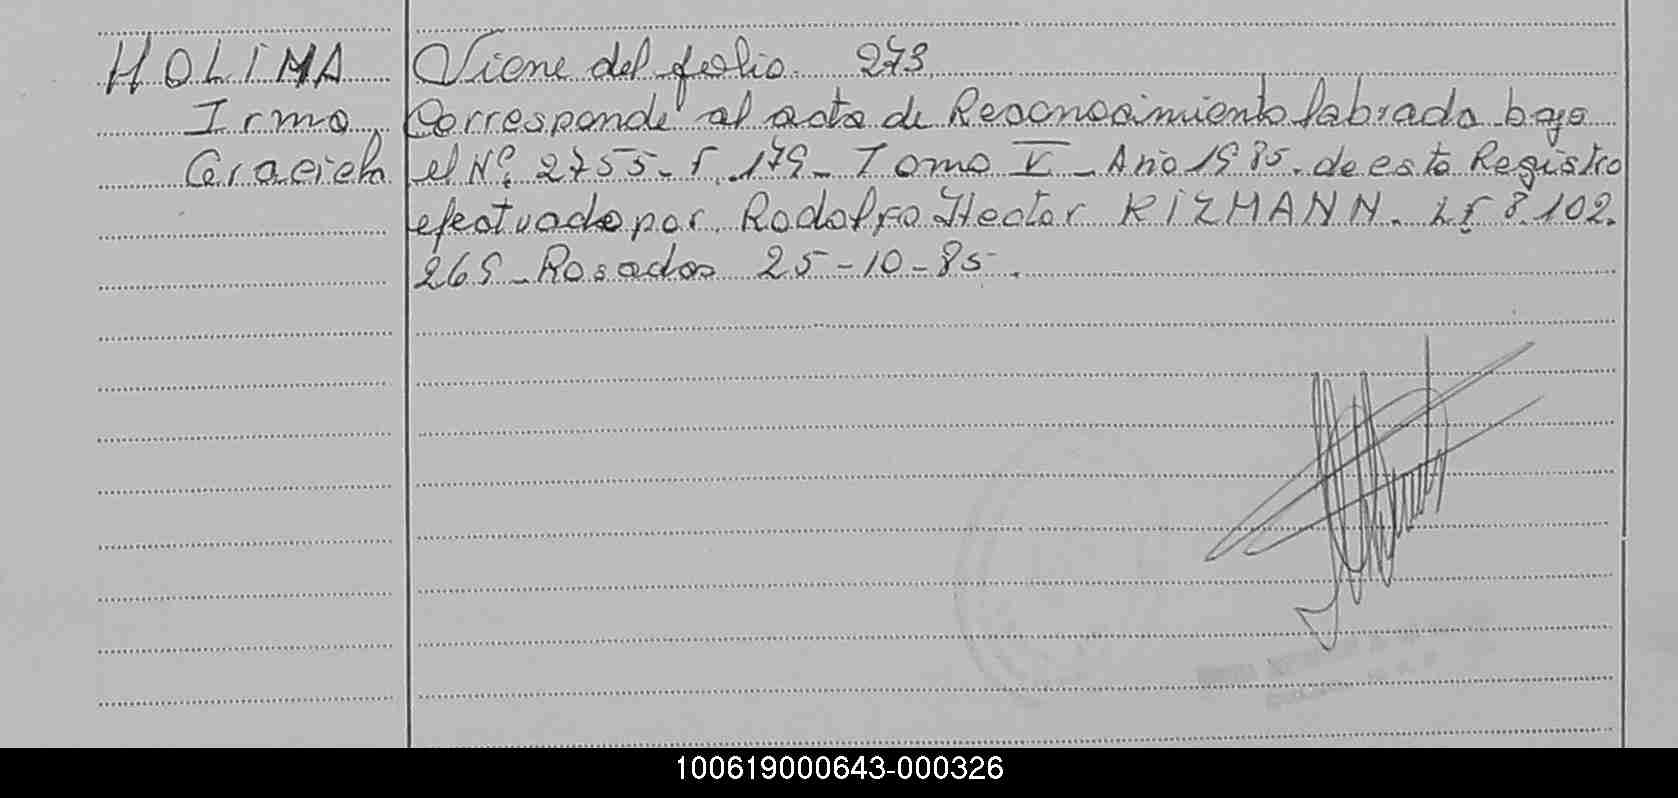 MOLINA
Irma
Graciela
Viene del folio. 273.
Corresponde al acta de Reconocimiento labrado bajo
el Nº 2755 - F. 179 - Tomo V - Año 1985. de este Registro
efectuado por Rodolfo Hector KIZMANN. LE 8.102.
269 - Rosados 25-10-85.
100619000643-000326